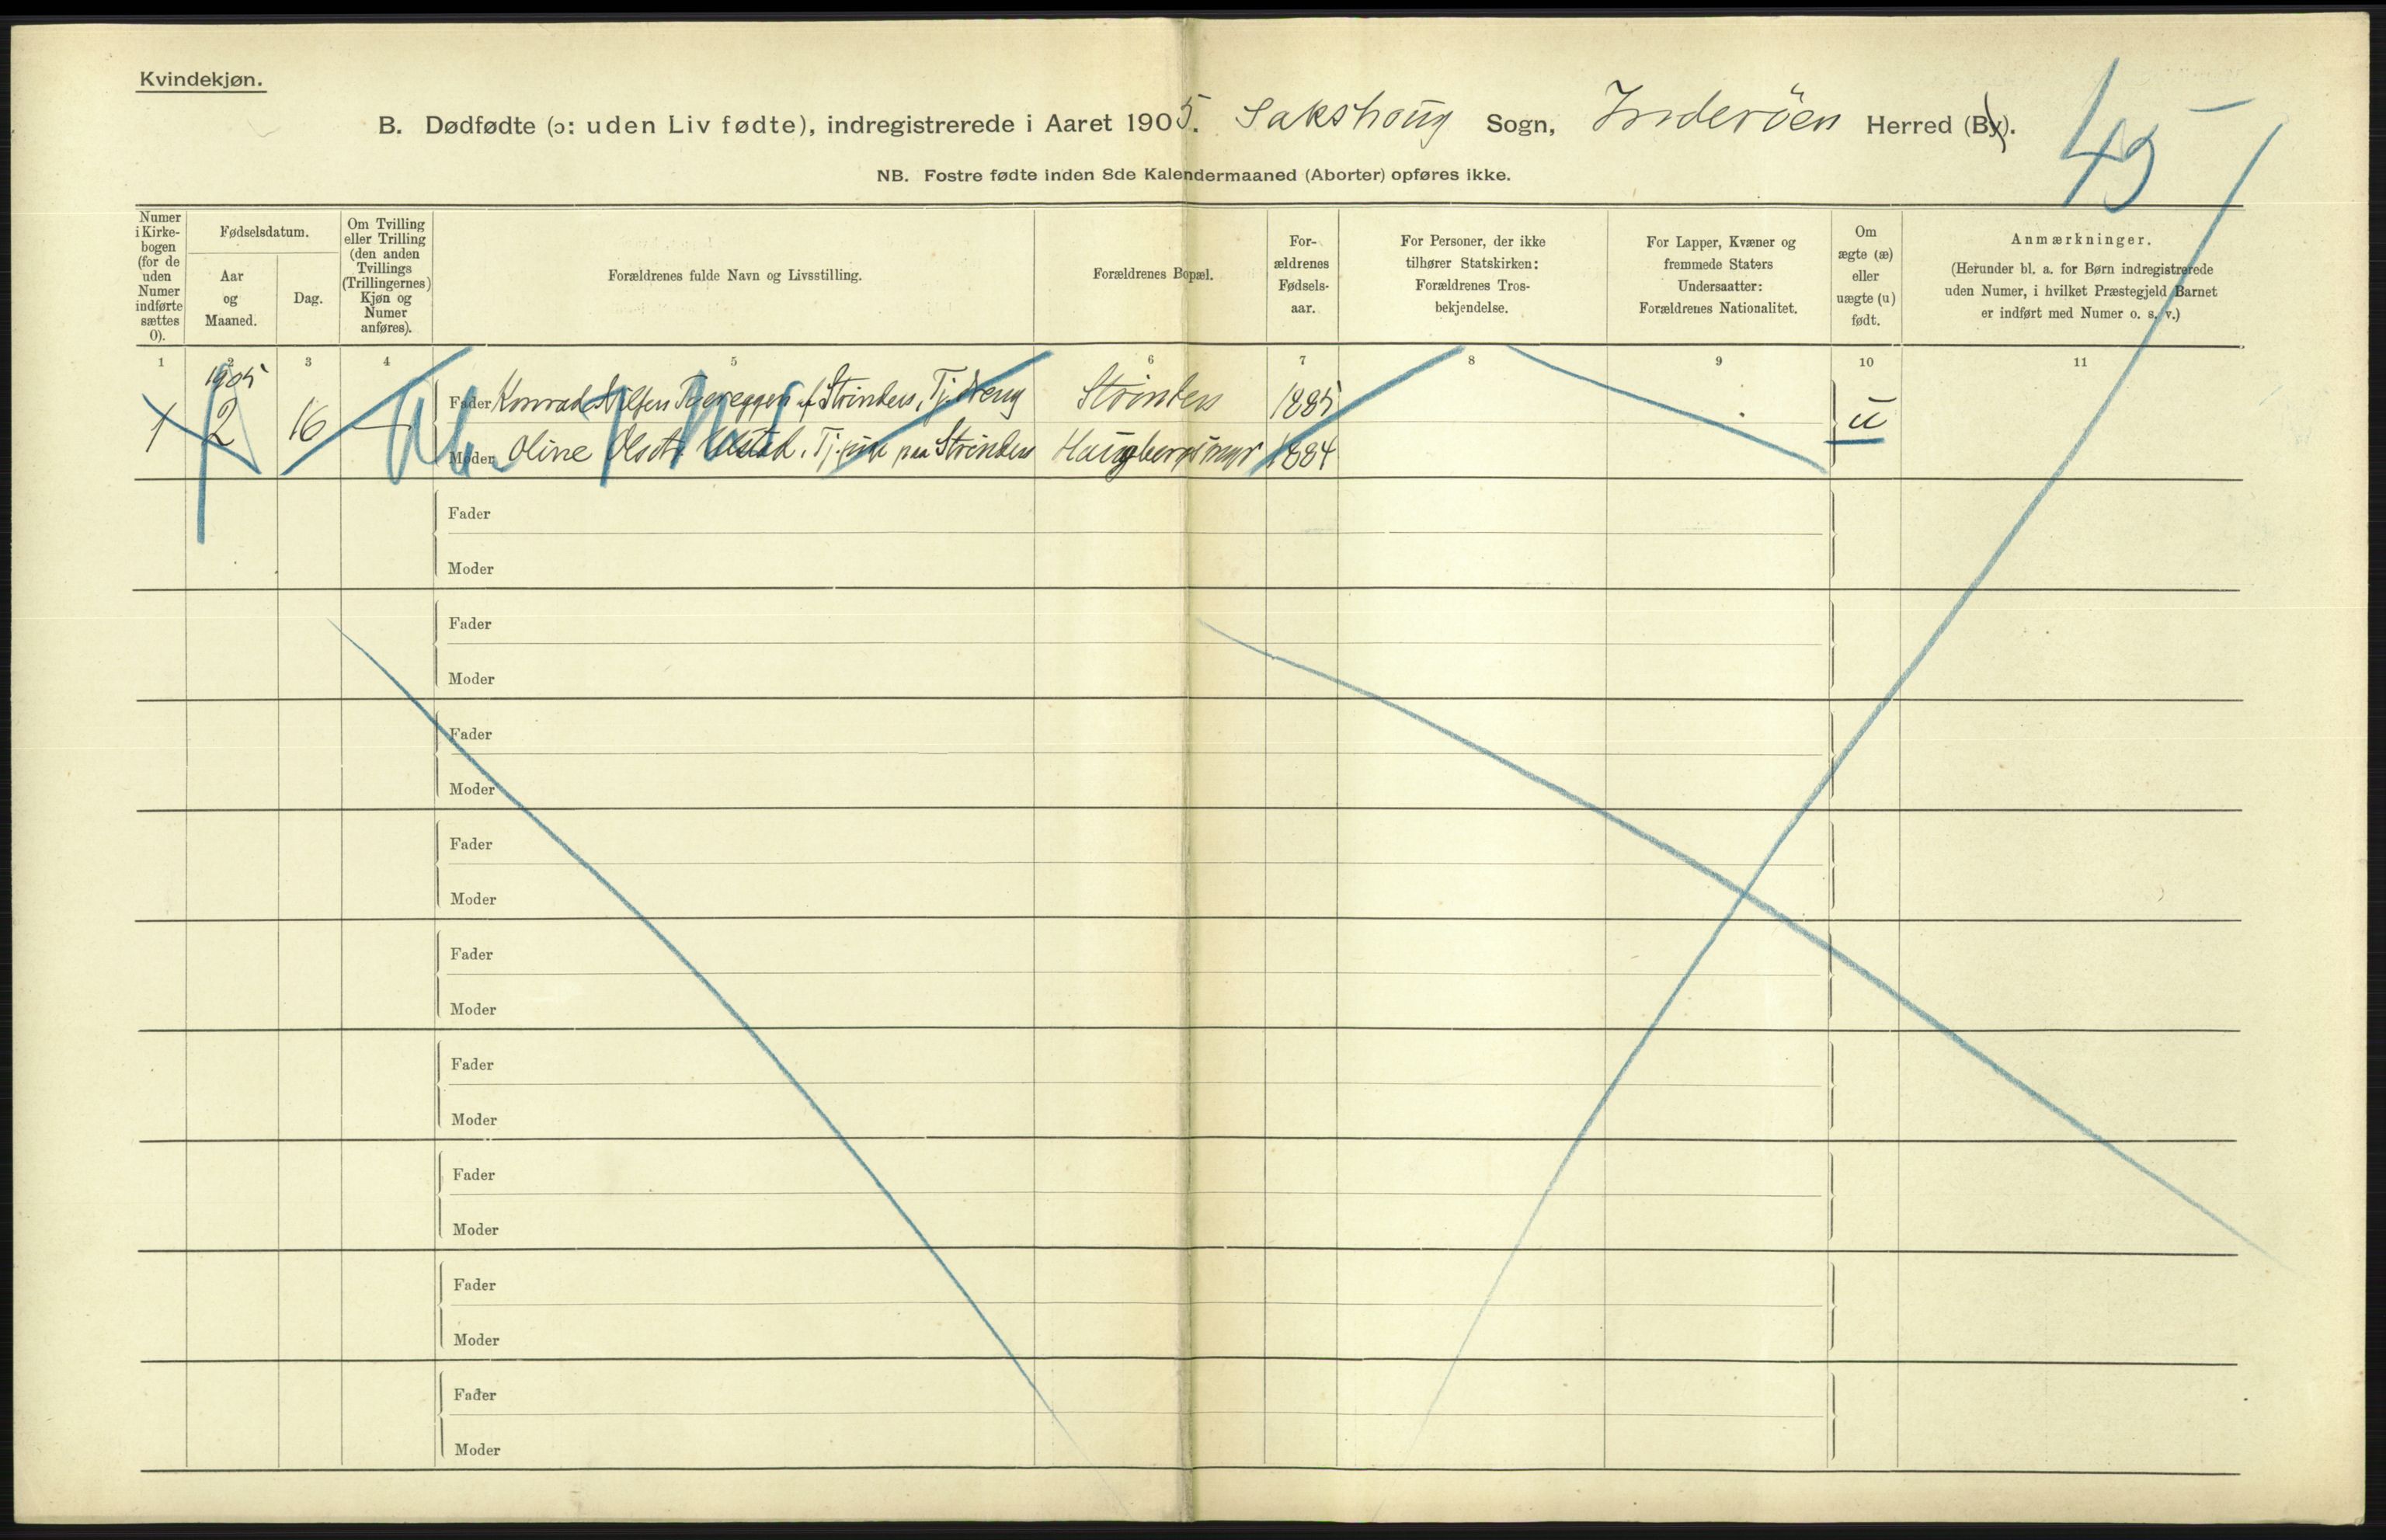 Kvindekjøn.
B. Dødfødte (ɔ: uden Liv fødte), indregistrerede i Aaret 1905. Sakshoug Sogn, Inderöen Herred (By).
45
NB. Fostre fødte inden 8de Kalendermaaned (Aborter) opføres ikke.
Numer i Kirke- bogen (for de uden Numer indførte sættes 0).
Fødselsdatum.
Aar og Maaned.
Dag.
Om Tvilling eller Trilling (den anden Tvillings (Trillingernes) Kjøn og Numer anføres).
Forældrenes fulde Navn og Livsstilling.
Forældrenes Bopæl.
For- ældrenes Fødsels- aar.
For Personer, der ikke tilhører Statskirken: Forældrenes Tros- bekjendelse.
For Lapper, Kvæner og fremmede Staters Undersaatter: Forældrenes Nationalitet.
Om ægte (æ) eller uægte (u) født.
Anmærkninger.
(Herunder bl. a. for Børn indregistrerede uden Numer, i hvilket Præstegjeld Barnet er indført med Numer o. s. v.)
1 2 3 4 5 6 7 8 9 10 11
1905
1 2 16 — Fader Konrad Strinden, Tj. dreng Strinden 1885 u
Moder Oline Olsdt. Tj. pige paa Strinden Haugbergsmyr 1884
Fader
Moder
Fader
Moder
Fader
Moder
Fader
Moder
Fader
Moder
Fader
Moder
Fader
Moder
Fader
Moder
Fader
Moder